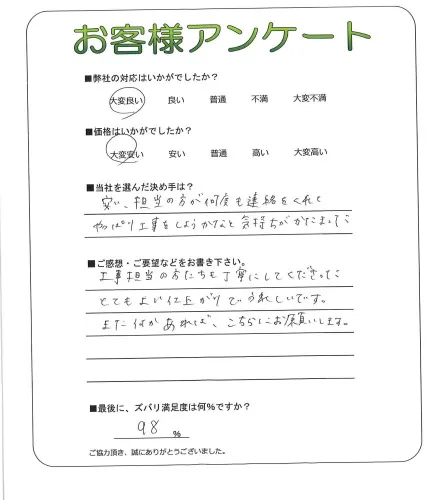 お客様アンケート
■弊社の対応はいかがでしたか？
大変良い 良い 普通 不満 大変不満
■価格はいかがでしたか？
大変安い 安い 普通 高い 大変高い
■当社を選んだ決め手は？
安い、担当の方が何度も連絡をくれて
やっぱり工事をしようかなと気持ちがかたまった
■ご感想・ご要望などをお書き下さい。
工事担当の方たちも丁寧にしてくださった
とてもよい仕上がりでうれしいです。
また何かあれば、こちらにお願いします。
■最後に、ズバリ満足度は何%ですか？
98 %
ご協力頂き、誠にありがとうございました。